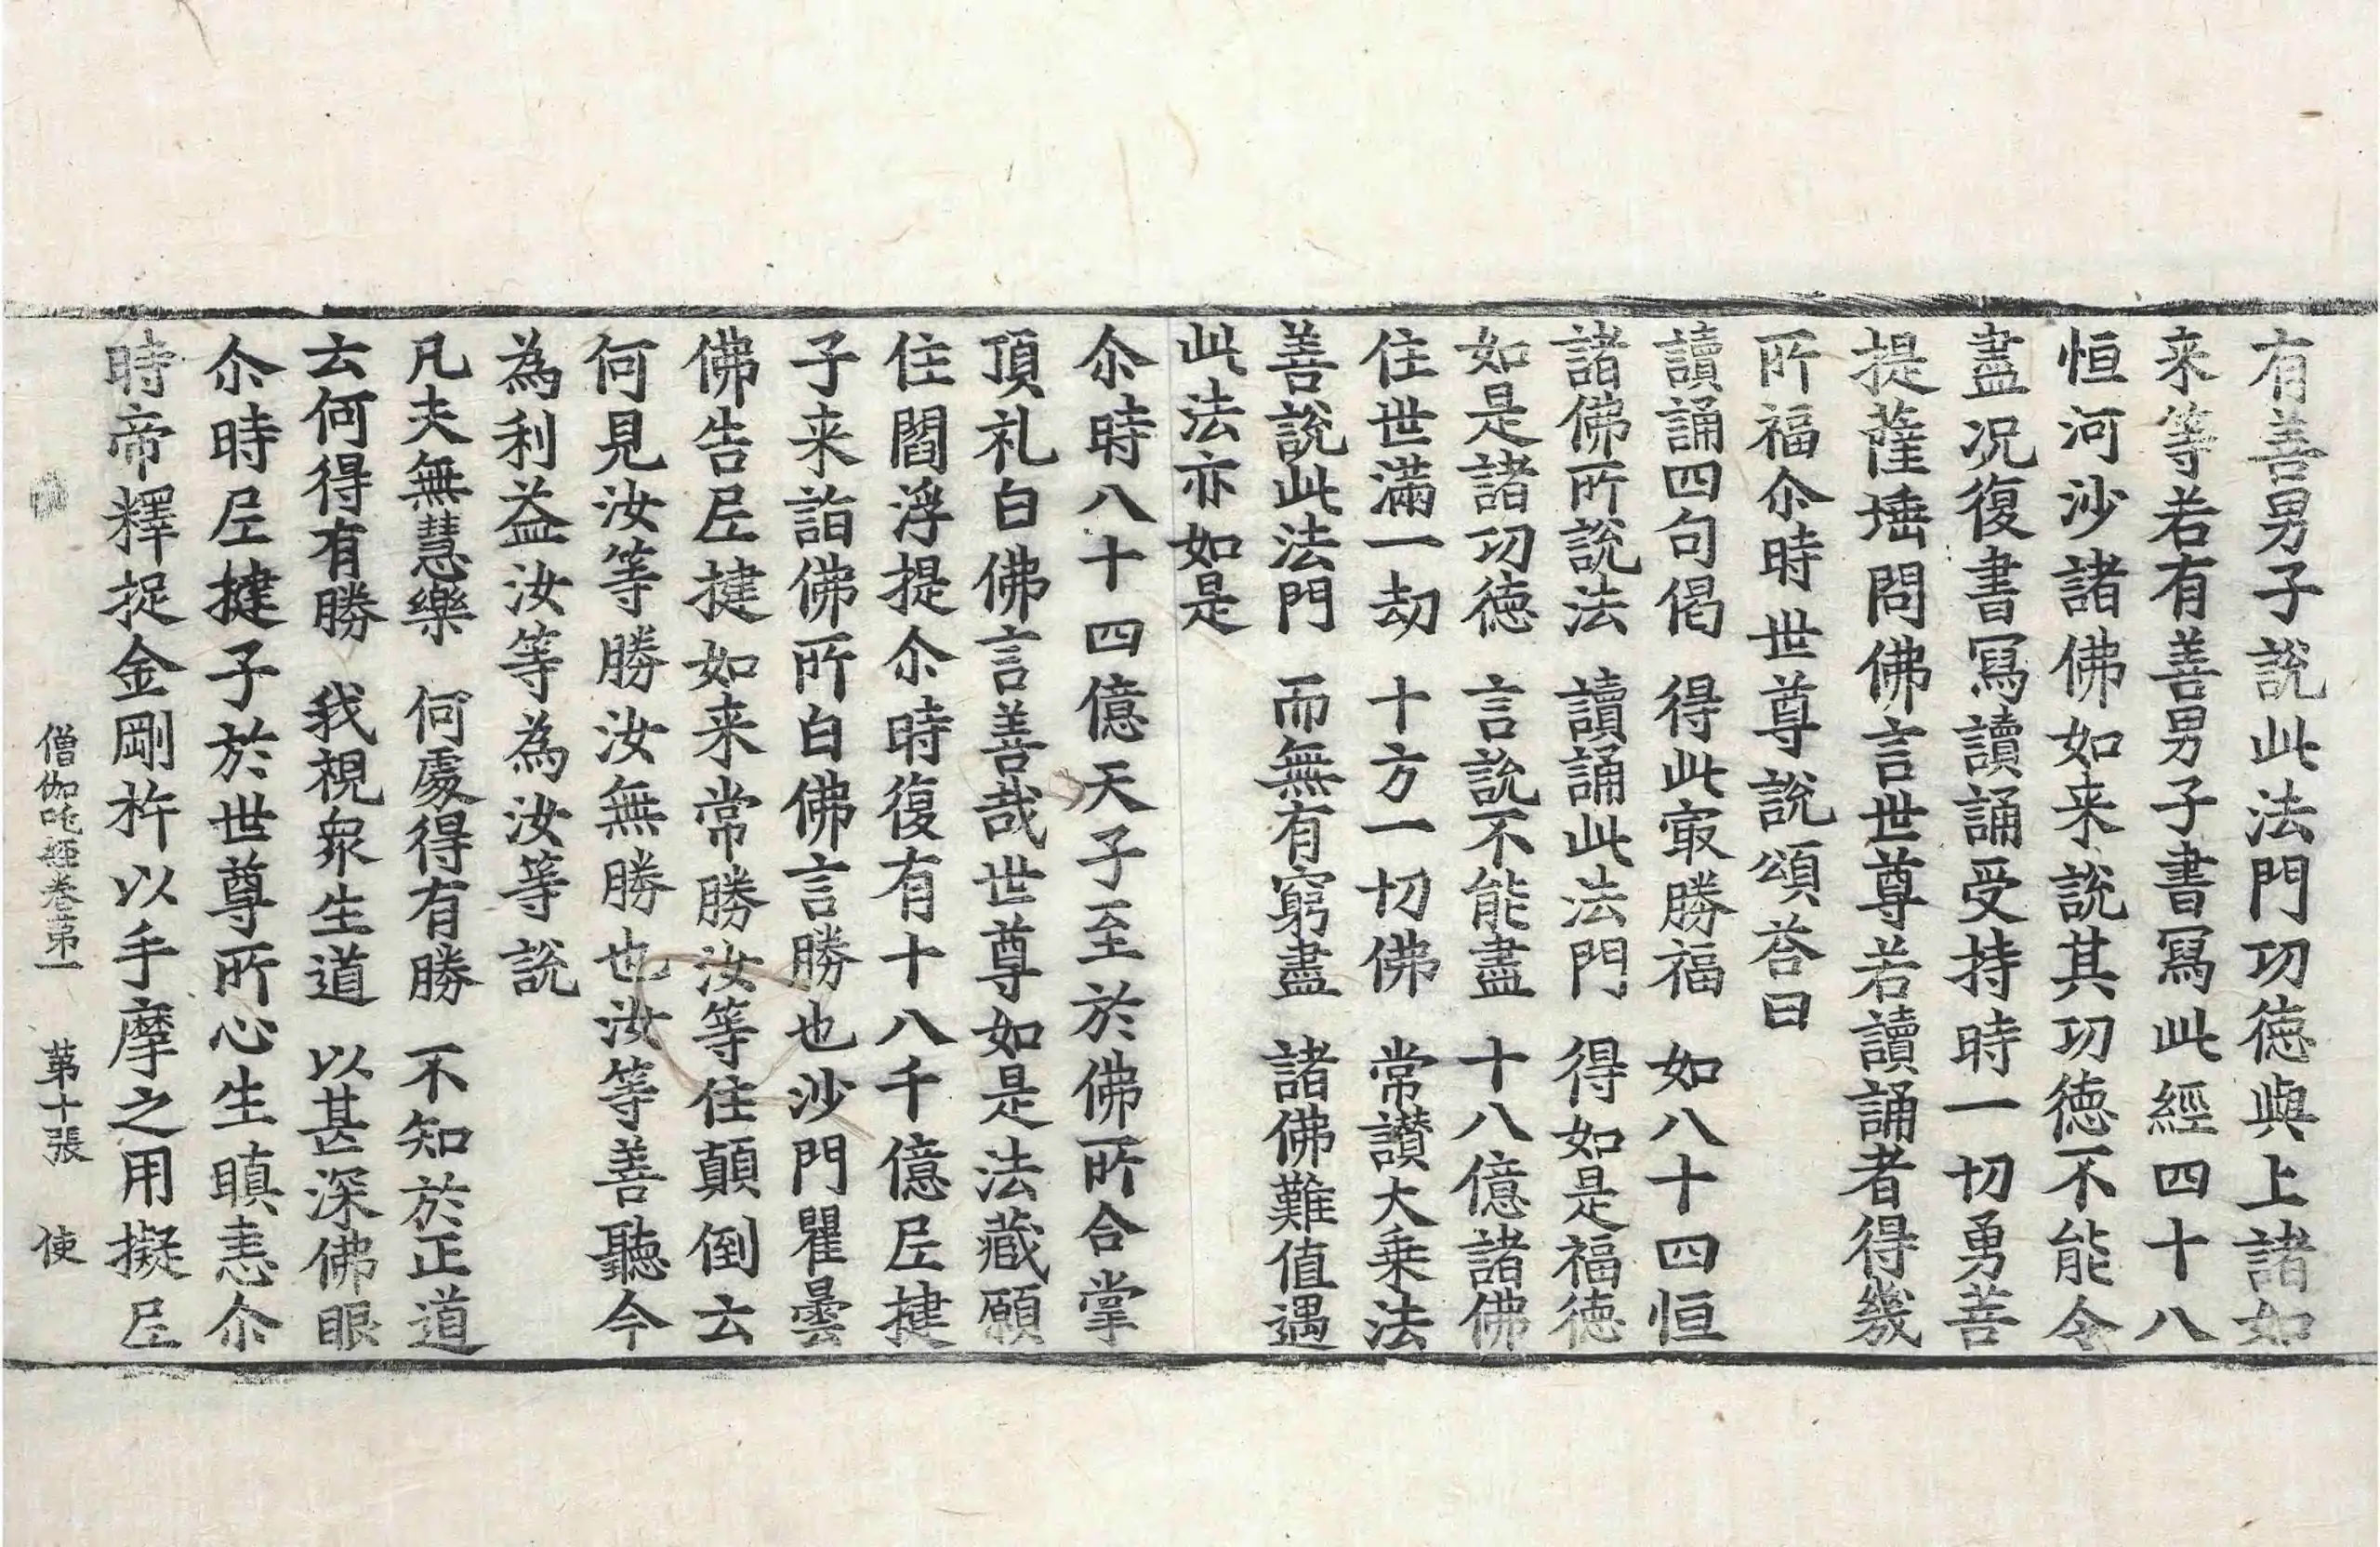 有善男子說此法門功德與上諸如
来等若有善男子書寫此經四十八
恒河沙諸佛如来說其功德不能令
盡况復書寫讀誦受持時一切勇善
提薩埵問佛言世尊若讀誦者得幾
所福尒時世尊說頌荅曰
讀誦四句偈　得此㝡勝福　如八十四恒
諸佛所說法　讀誦此法門　得如是福德
如是諸功德　言說不能盡　十八億諸佛
住世滿一劫　十方一切佛　常讃大乗法
善說此法門　而無有窮盡　諸佛難值遇
此法亦如是
尒時八十四億天子至於佛所合掌
頂礼白佛言善哉世尊如是法藏願
住閻浮提尒時復有十八千億𡰱揵
子来詣佛所白佛言勝也沙門瞿曇
佛告𡰱揵如来常勝汝等住顛倒云
何見汝等勝汝無勝也汝等善聽今
為利益汝等為汝等說
凡夫無慧樂　何處得有勝　不知於正道
云何得有勝　我視衆生道　以甚深佛眼
尒時𡰱揵子於世尊所心生瞋恚尒
時帝釋捉金剛杵以手摩之用擬𡰱
僧伽吒經卷苐一　苐十張　使